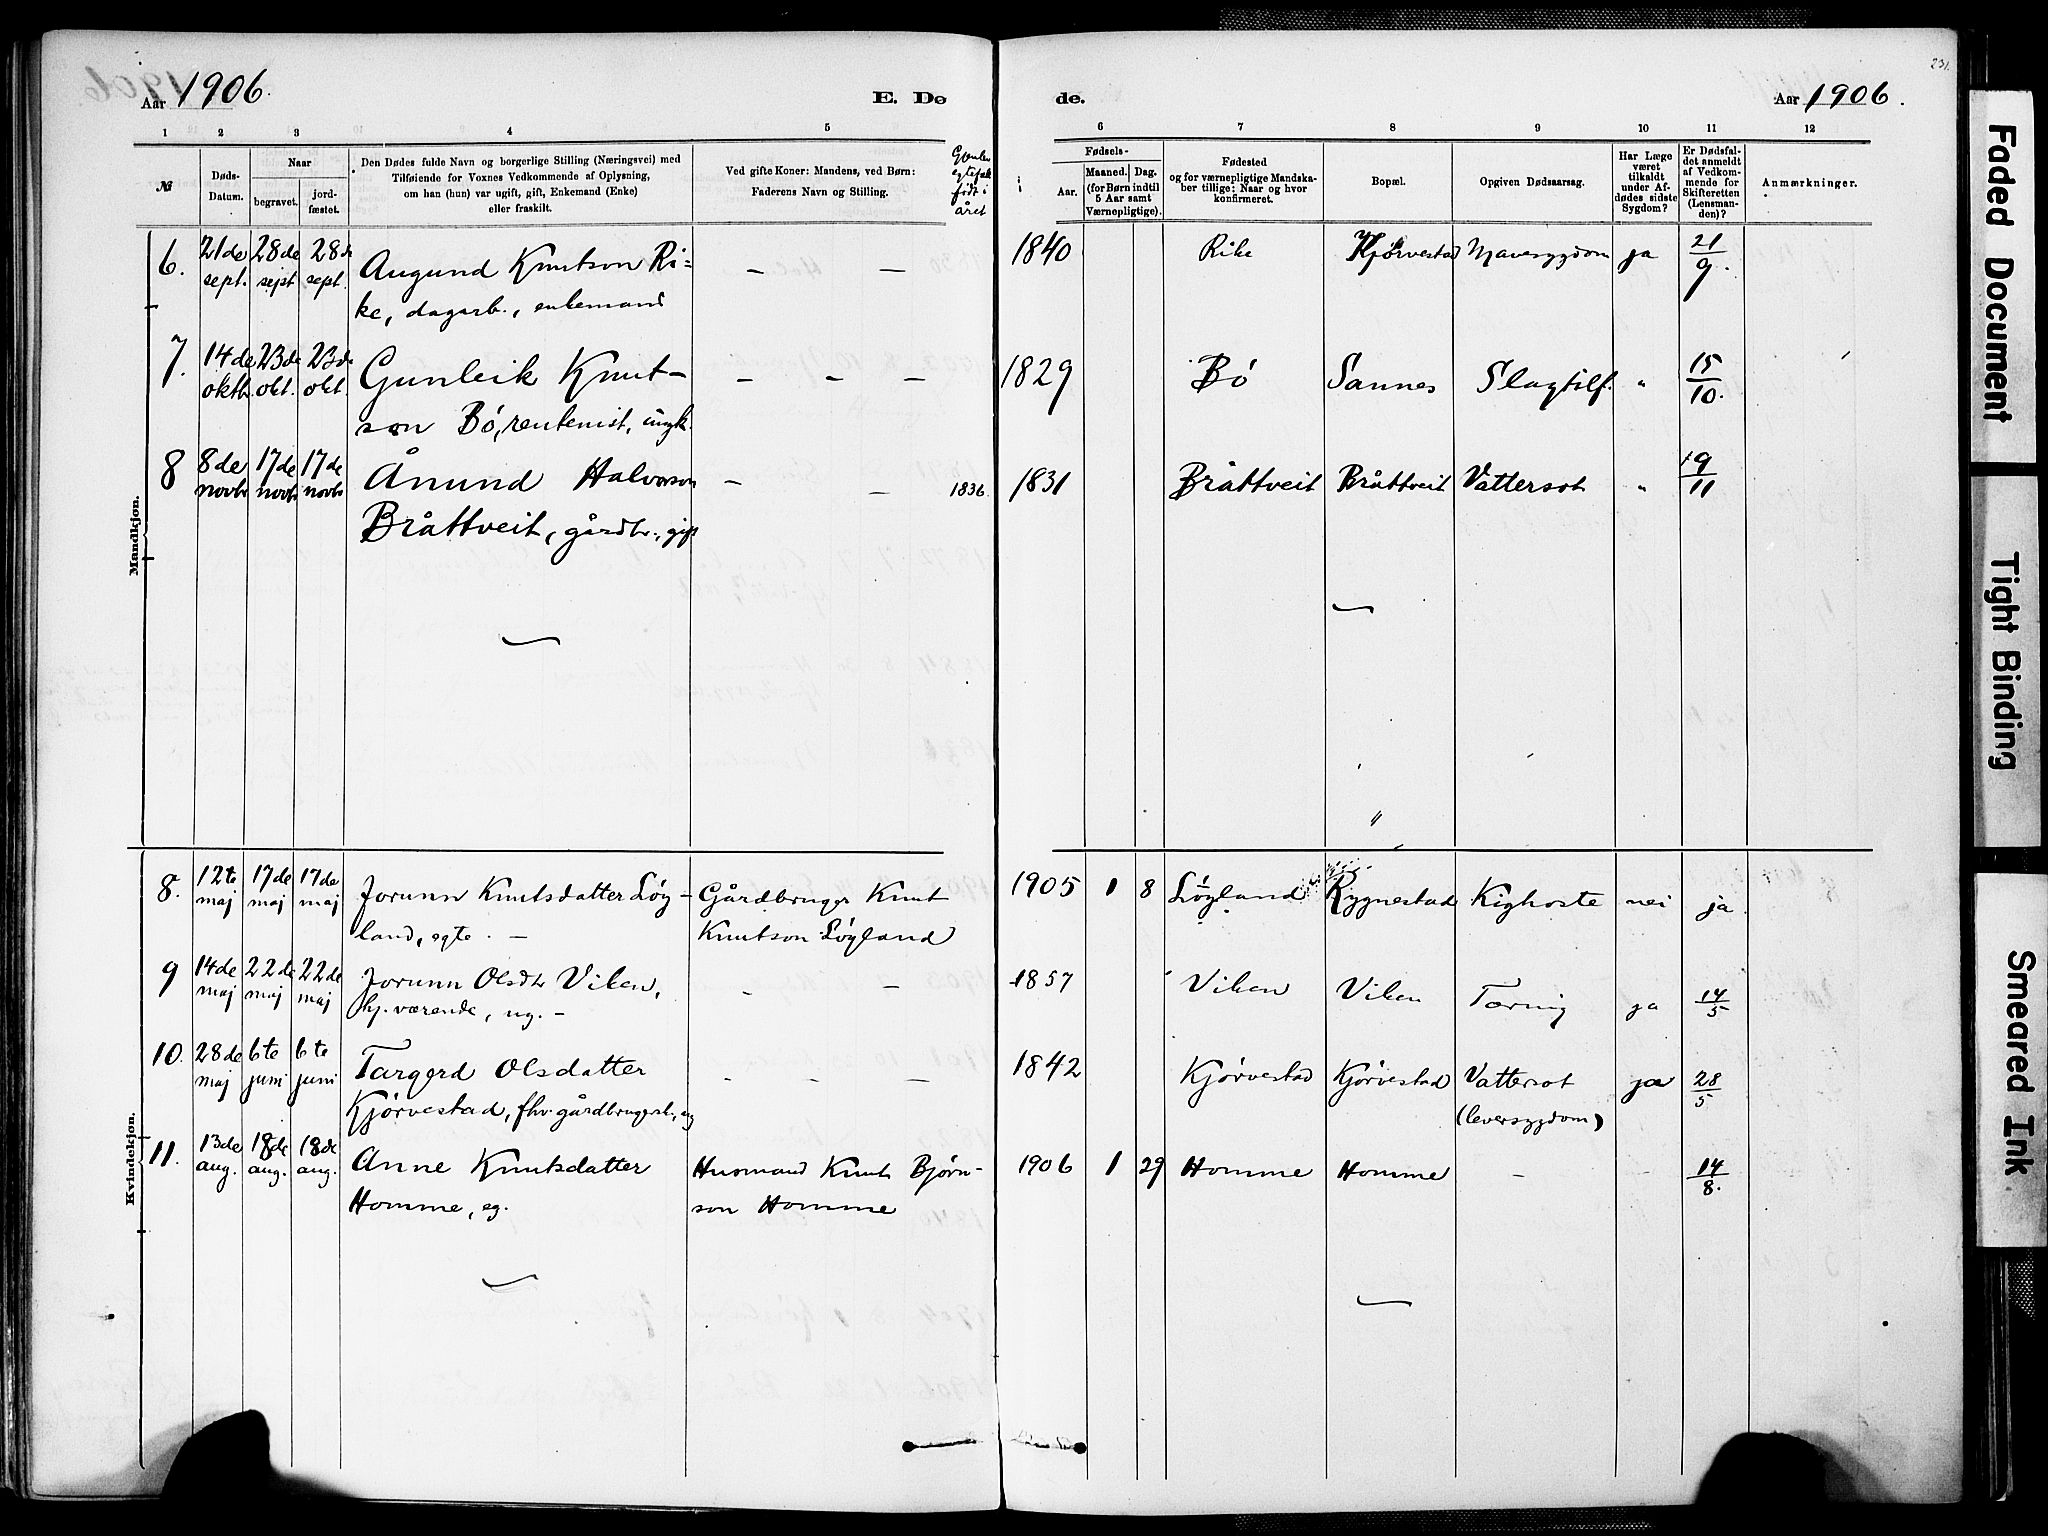 231.
Aar 1906. E. Dø
de. Aar 1906.
1 2 3 4 5
6 7 8 9 10 11 12
№
Døds-
Datum.
Naar
begravet.
jord-
fæstet.
Den Dødes fulde Navn og borgerlige Stilling (Næringsvei) med
Tilføiende for Voxnes Vedkommende af Oplysning,
om han (hun) var ugift, gift, Enkemand (Enke)
eller fraskilt.
Ved gifte Koner: Mandens, ved Børn:
Faderens Navn og Stilling.
født i
året
Fødsels-
Aar.
Maaned. Dag.
(for Børn indtil
5 Aar samt
Værnepligtige).
Fødested
og for værnepligtige Mandska-
ber tillige: Naar og hvor
konfirmeret.
Bopæl.
Opgiven Dødsaarsag.
Har Læge
været
tilkaldt
under Af-
dødes sidste
Sygdom?
Er Dødsfal-
det anmeldt
af Vedkom-
mende for
Skifteretten
(Lensman-
den)?
Anmærkninger.
Mandkjøn.
6. 21de 28de 28de Augund Knutson Ri= — — 1840 Rike Kjørvestad Mavesygdom ja 21/9.
sept. sept sept. ke, dagarb., enkemand
7. 14de 23de 23de Gunleik Knut- — — — 1829 Bó Sannes Slagtilf. " 15/10.
oktb. okt. okt. son Bó, rentenist, ungk.
8 8de 17de 17de Ånund Halvorson — — 1836. 1831 Bråttveit Bråttveit Vattersot " 9/11
novb novb novb Bråttveit, gårdbr., gift
Kvindekjøn.
8. 12te 17de 17de Jorunn Knutsdatter Löy- Gårdbruger Knut 1905 1 8 Löyland Rygnestad Kighoste nei ja
maj maj maj land, egte. — Knutson Löyland
9 14de 22de 22de Jorunn Olsdtr Viken, — — 1857 Viken Viken Tæring ja 14/5
maj maj maj hj. værende, ug. —
10. 28de 6te 6te Targerd Olsdatter — — — 1842 Kjørvestad Kjørvestad Vattersot ja 28/5
maj juni juni Kjørvestad, fhv. gårdbrugersk., ug (leversygdom)
11. 13de 18de 18de Anne Knutsdatter Husmand Knut Bjørn- 1906 1 29 Homme Homme — — 14/8.
aug. aug. aug. Homme, eg. son Homme
Faded Document
Tight Binding
Smeared Ink